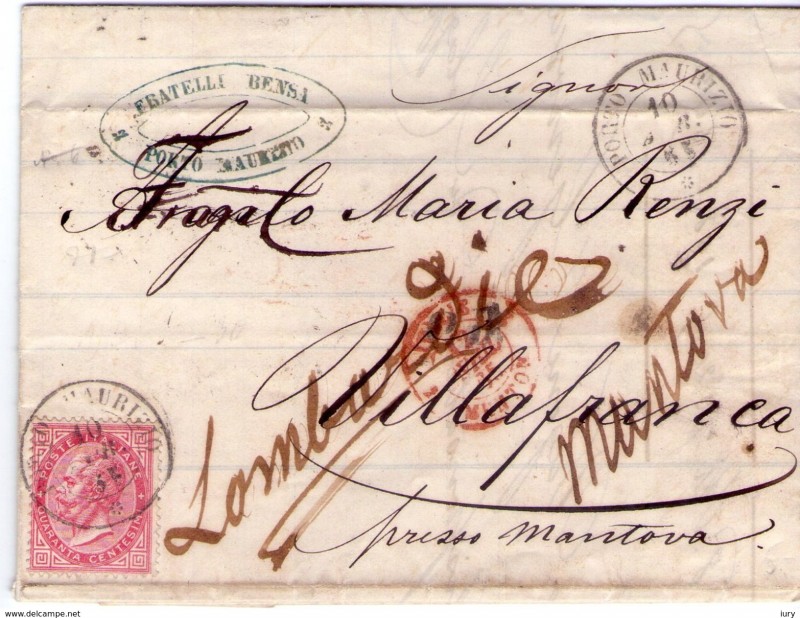 FRATELLI BENSA
PORTO MAURIZIO
PORTO MAURIZIO
10
Signor
Angelo Maria Renzi
Villafranca
Lombardia
Mantova
presso Mantova
MENTON
MAURIZIO
10
POSTE ITALIANE
QUARANTA CENTESIMI
www.delcampe.net
iury